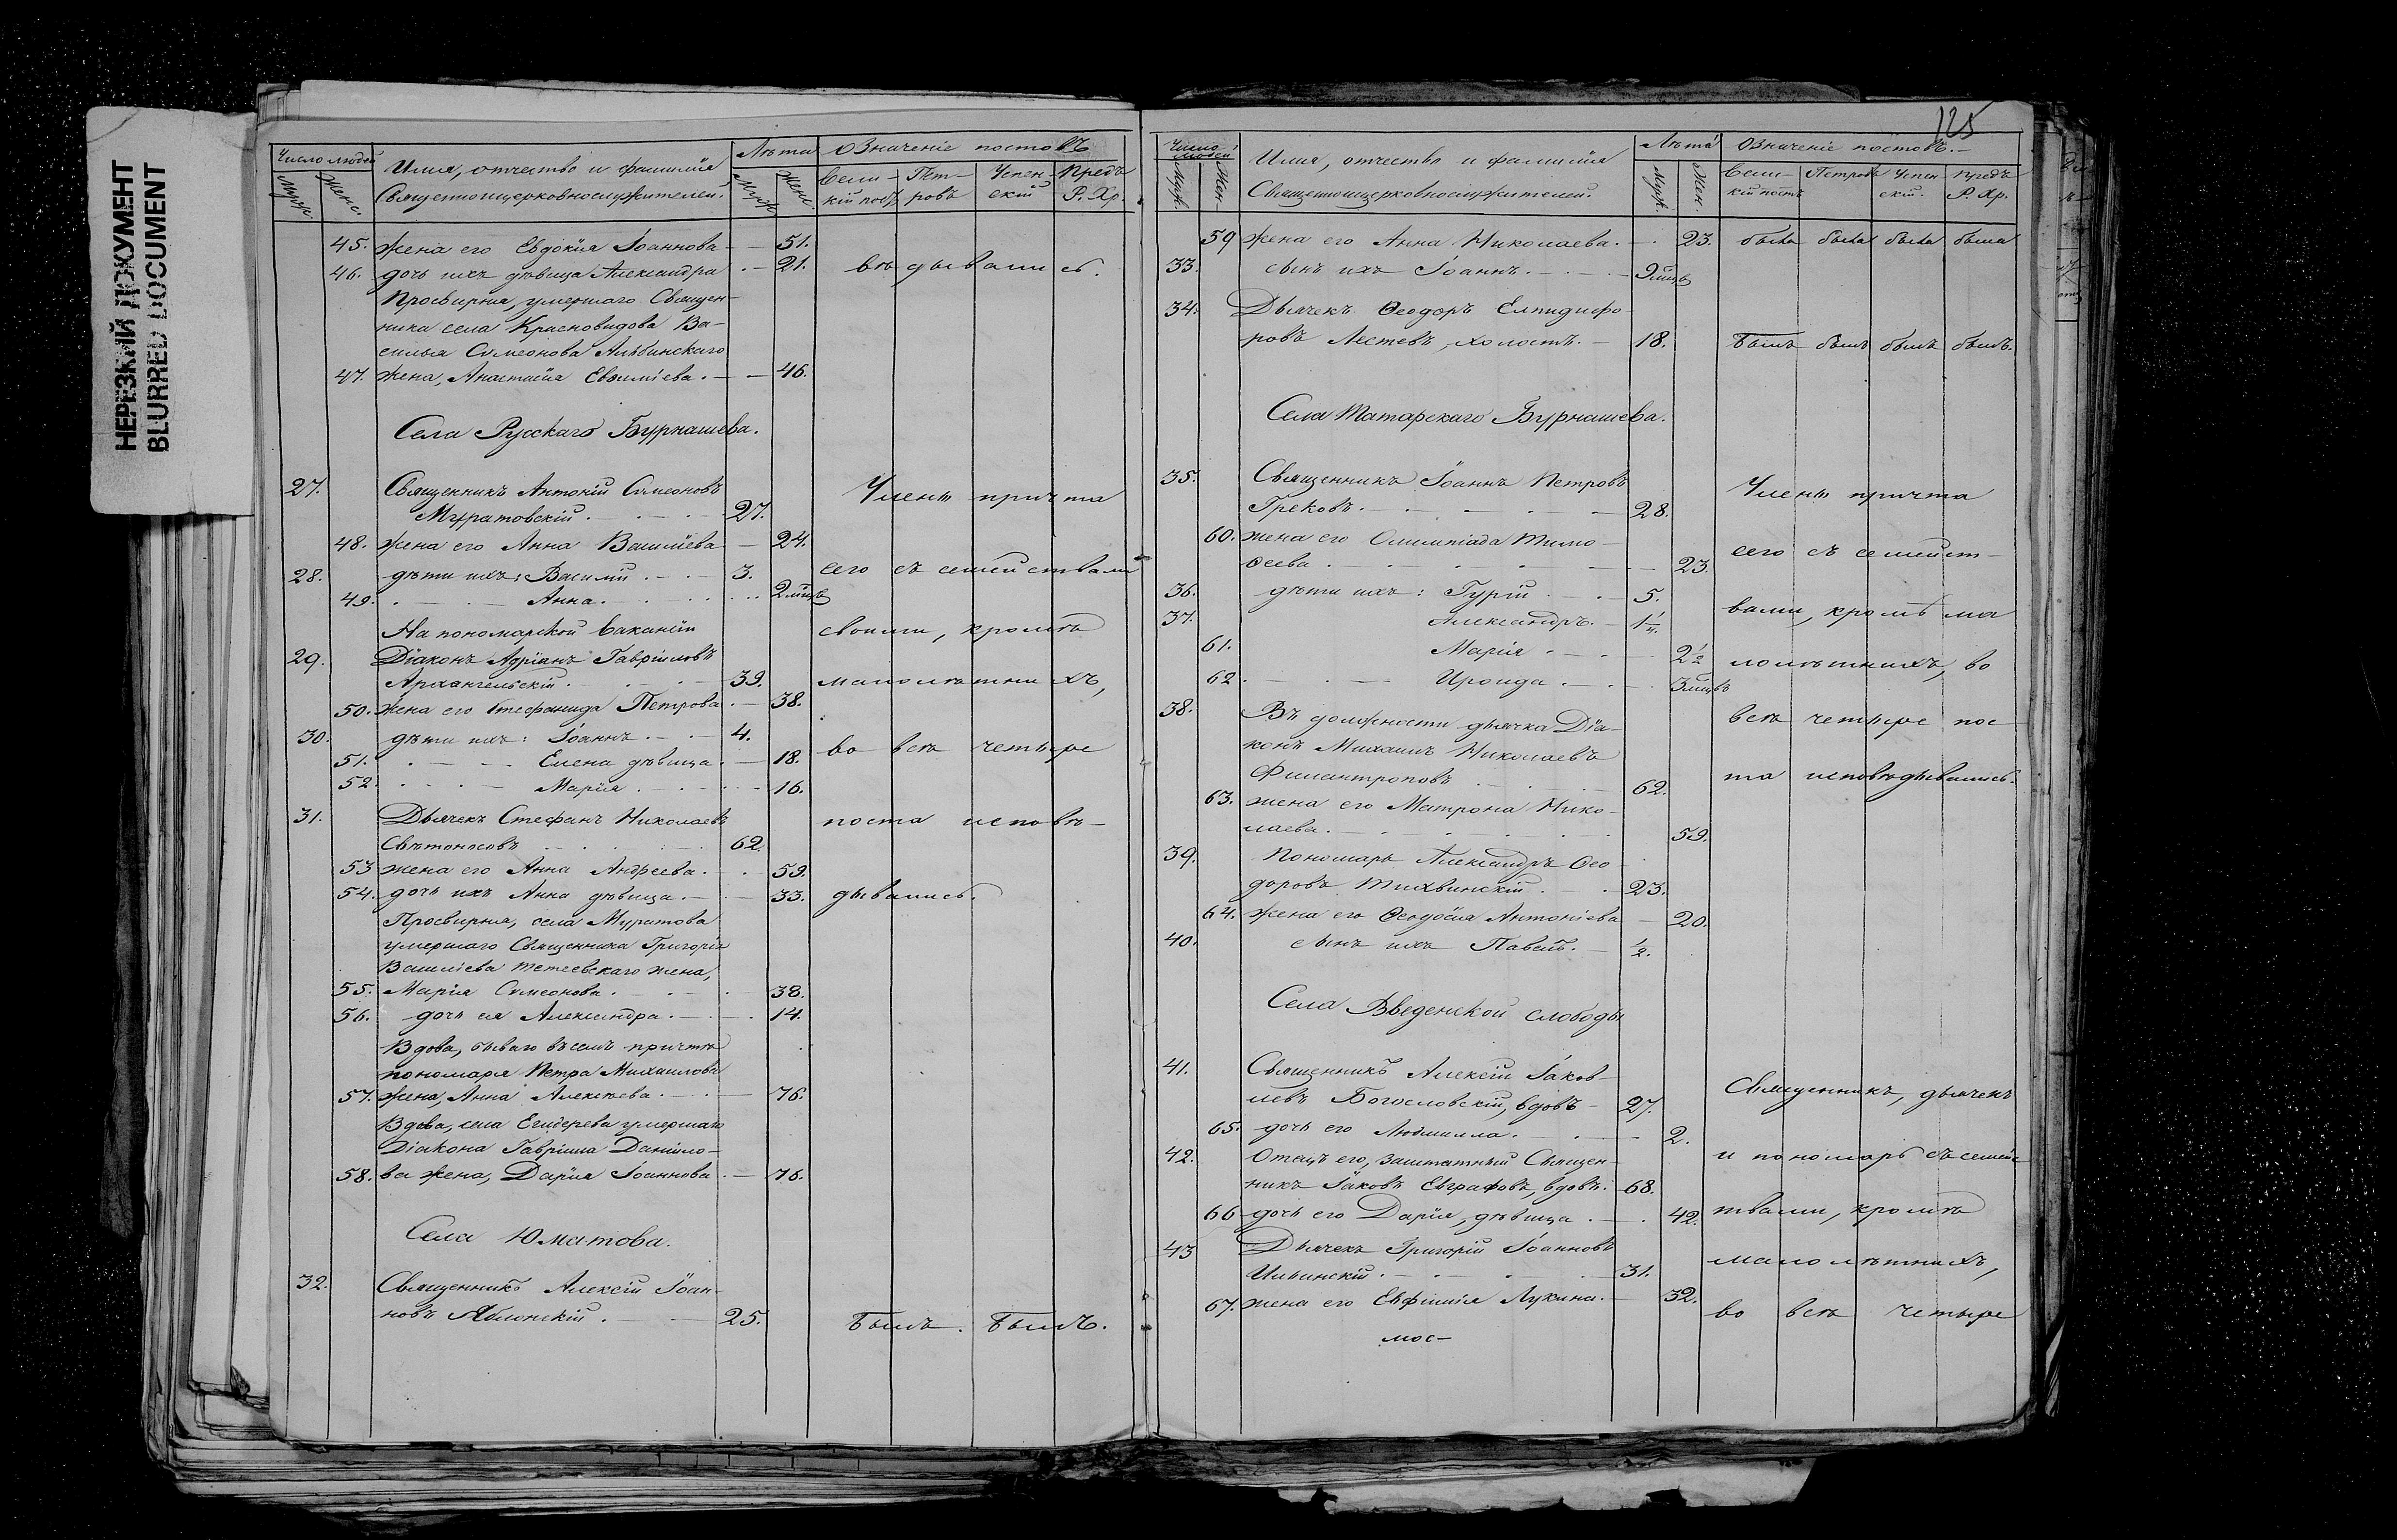 НЕРЕЗКИЙ ДОКУМЕНТ
BLURRED DOCUMENT
Число людей
Имя, отчество и фамилія
Священноцерковнослужителей.
Лѣта
Означеніе постовъ
Муж.
Женс.
Муж.
Жен.
Вели- Пет- Успен- Предъ
кій пост. ровъ скій Р. Хр.
45. жена его Евдокія Іоаннова 51.
46. дочь ихъ дѣвица Александра 21. вѣдывались.
Просвирня, умершаго Священ-
ника села Красновидова Ва-
силья Симеонова
47. жена, Анастасія Евѳиміева. 46.
Села Русскаго Бурнашева.
27. Священникъ Антоній Симеоновъ
Муратовскій 27. Члены причта
48. жена его Анна Васильева 24.
28. дѣти ихъ: Василій 3. сего съ семействами
49. Анна. 2 мцѣ
На пономарской вакансіи своими, кромѣ
29. Діаконъ Адріанъ Гавріиловъ
Архангельскій 39. малолѣтнихъ,
50. жена его Стефанида Петрова 38.
30. дѣти ихъ: Іоаннъ 4. во всѣ четыре
51. Елена дѣвица 18.
52. Марія 16.
31. Дьячекъ Стефанъ Николаевъ поста исповѣ-
Свѣтоносовъ 62.
53 жена его Анна Андреева. 59.
54. дочь ихъ Анна дѣвица. 33. дывались.
Просвирня, села Муратова
умершаго Священника Григорія
Василіева Тетеевскаго жена,
55. Марія Симеонова. 38.
56. дочь ея Александра. 14.
Вдова, бываго въ семъ причтѣ
пономаря Петра Михаилова
57. жена, Анна Алексѣева. 76.
Вдова, села Егидерева умершаго
Діакона Гавріила Даніило-
58. ва жена, Дарія Іоаннова 76.
Села Юматова.
32. Священникъ Алексій Іоан-
новъ Яблонскій. 25. Былъ. Былъ.
125
Число людей
Имя, отчество и фамилія
Священноцерковнослужителей.
Лѣта
Означеніе постовъ.
Муж.
Жен.
Муж.
Жен.
Вели- Петровъ Успен- Предъ
кій постъ скій. Р. Хр.
59 жена его Анна Николаева. 23. была была была была
33. сынъ ихъ Іоаннъ. 9 мцѣ
34. Дьячекъ Ѳеодоръ Елпидифо-
ровъ Лестевъ, холостъ. 18. Былъ былъ былъ былъ.
Села Татарскаго Бурнашева.
35. Священникъ Іоаннъ Петровъ Члены причта
Грековъ. 28.
60. жена его Олимпіада Тимо- сего съ семейст-
ѳеева 23.
36. дѣти ихъ: Гурій 5.
37. Александръ. 1 1/4. вами, кромѣ ма
61. Марія 2 1/2 лолѣтнихъ, во
62 Ироида 3 мцѣ
38. Въ должности дьячка Діа- всѣ четыре пос
конъ Михаилъ Николаевъ
Филантроповъ 62. та исповѣдывались.
63. жена его Матрона Нико-
лаева. 59.
39. Пономарь Александръ Ѳео-
доровъ Тихвинскій 23.
64. жена его Ѳеодосія Антоніева 20.
40. сынъ ихъ Павелъ. 1/2.
Села Введенской слободы
41. Священникъ Алексій Іаков-
левъ Богословскій, вдовъ 27. Священникъ, дьячекъ
65. дочь его Людмилла. 2.
42. Отецъ его, заштатный Священ- и пономарь съ семейс
никъ Іаковъ Евграфовъ, вдовъ. 68.
66 дочь его Дарія, дѣвица 42. твами, кромѣ
43 Дьячекъ Григорій Іоанновъ
Ильинскій. 31. малолѣтнихъ,
67. жена его Евфимія Лукина. 32. во всѣ четыре